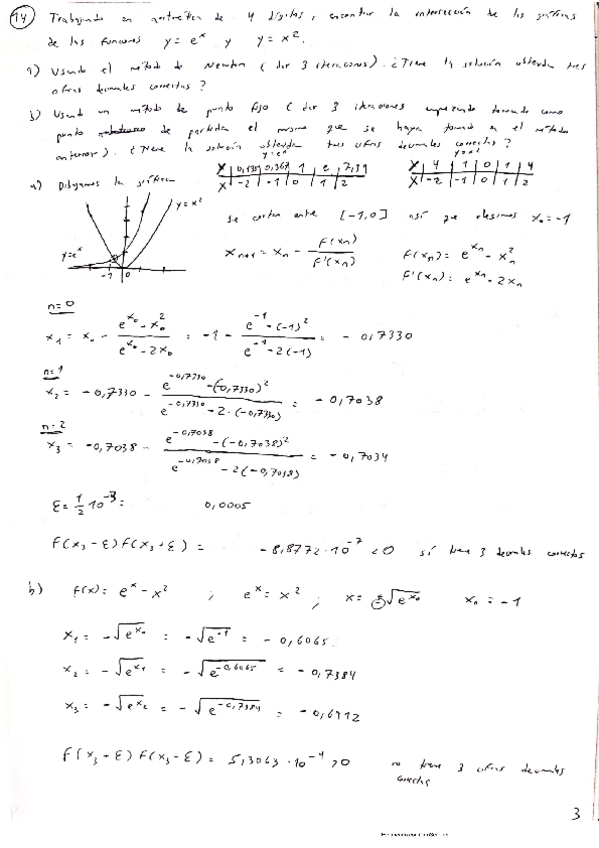 14 Trabajando en aritmética de 4 dígitos, encontrar la intersección de las gráficas
de las funciones y = e^x y y = x^2.
a) Usando el método de Newton (dar 3 iteraciones). ¿Tiene la solución obtenida tres
cifras decimales correctas?
b) Usando un método de punto fijo (dar 3 iteraciones empezando tomando como
punto de partida el mismo que se haya tomado en el método
anterior). ¿Tiene la solución obtenida tres cifras decimales correctas?
a) Dibujamos la gráfica
y=e^x
Y | 0,135 | 0,367 | 1 | e | 7,39
X | -2 | -1 | 0 | 1 | 2
y=x^2
Y | 4 | 1 | 0 | 1 | 4
X | -2 | -1 | 0 | 1 | 2
y=x^2
y=e^x
-1 0
se cortan entre [-1,0] así que elegimos x_0 = -1
x_{n+1} = x_n - F(x_n)/F'(x_n)
F(x_n) = e^{x_n} - x_n^2
F'(x_n) = e^{x_n} - 2x_n
n=0
x_1 = x_0 - (e^{x_0} - x_0^2)/(e^{x_0} - 2x_0) = -1 - (e^{-1} - (-1)^2)/(e^{-1} - 2(-1)) = -0,7330
n=1
x_2 = -0,7330 - (e^{-0,7330} - (-0,7330)^2)/(e^{-0,7330} - 2·(-0,7330)) = -0,7038
n=2
x_3 = -0,7038 - (e^{-0,7038} - (-0,7038)^2)/(e^{-0,7038} - 2(-0,7038)) = -0,7034
ε = 1/2 10^{-3} = 0,0005
F(x_3 - ε) F(x_3 + ε) = -8,8772·10^{-7} < 0 sí tiene 3 decimales correctos
b) F(x) = e^x - x^2 ; e^x = x^2 ; x = ±√e^{x_0} x_n = -1
x_1 = -√e^{x_0} = -√e^{-1} = -0,6065
x_2 = -√e^{x_1} = -√e^{-0,6065} = -0,7384
x_3 = -√e^{x_2} = -√e^{-0,7384} = -0,6912
F(x_3 + ε) F(x_3 - ε) = 5,3063·10^{-4} > 0 no tiene 3 cifras decimales
correctas
3